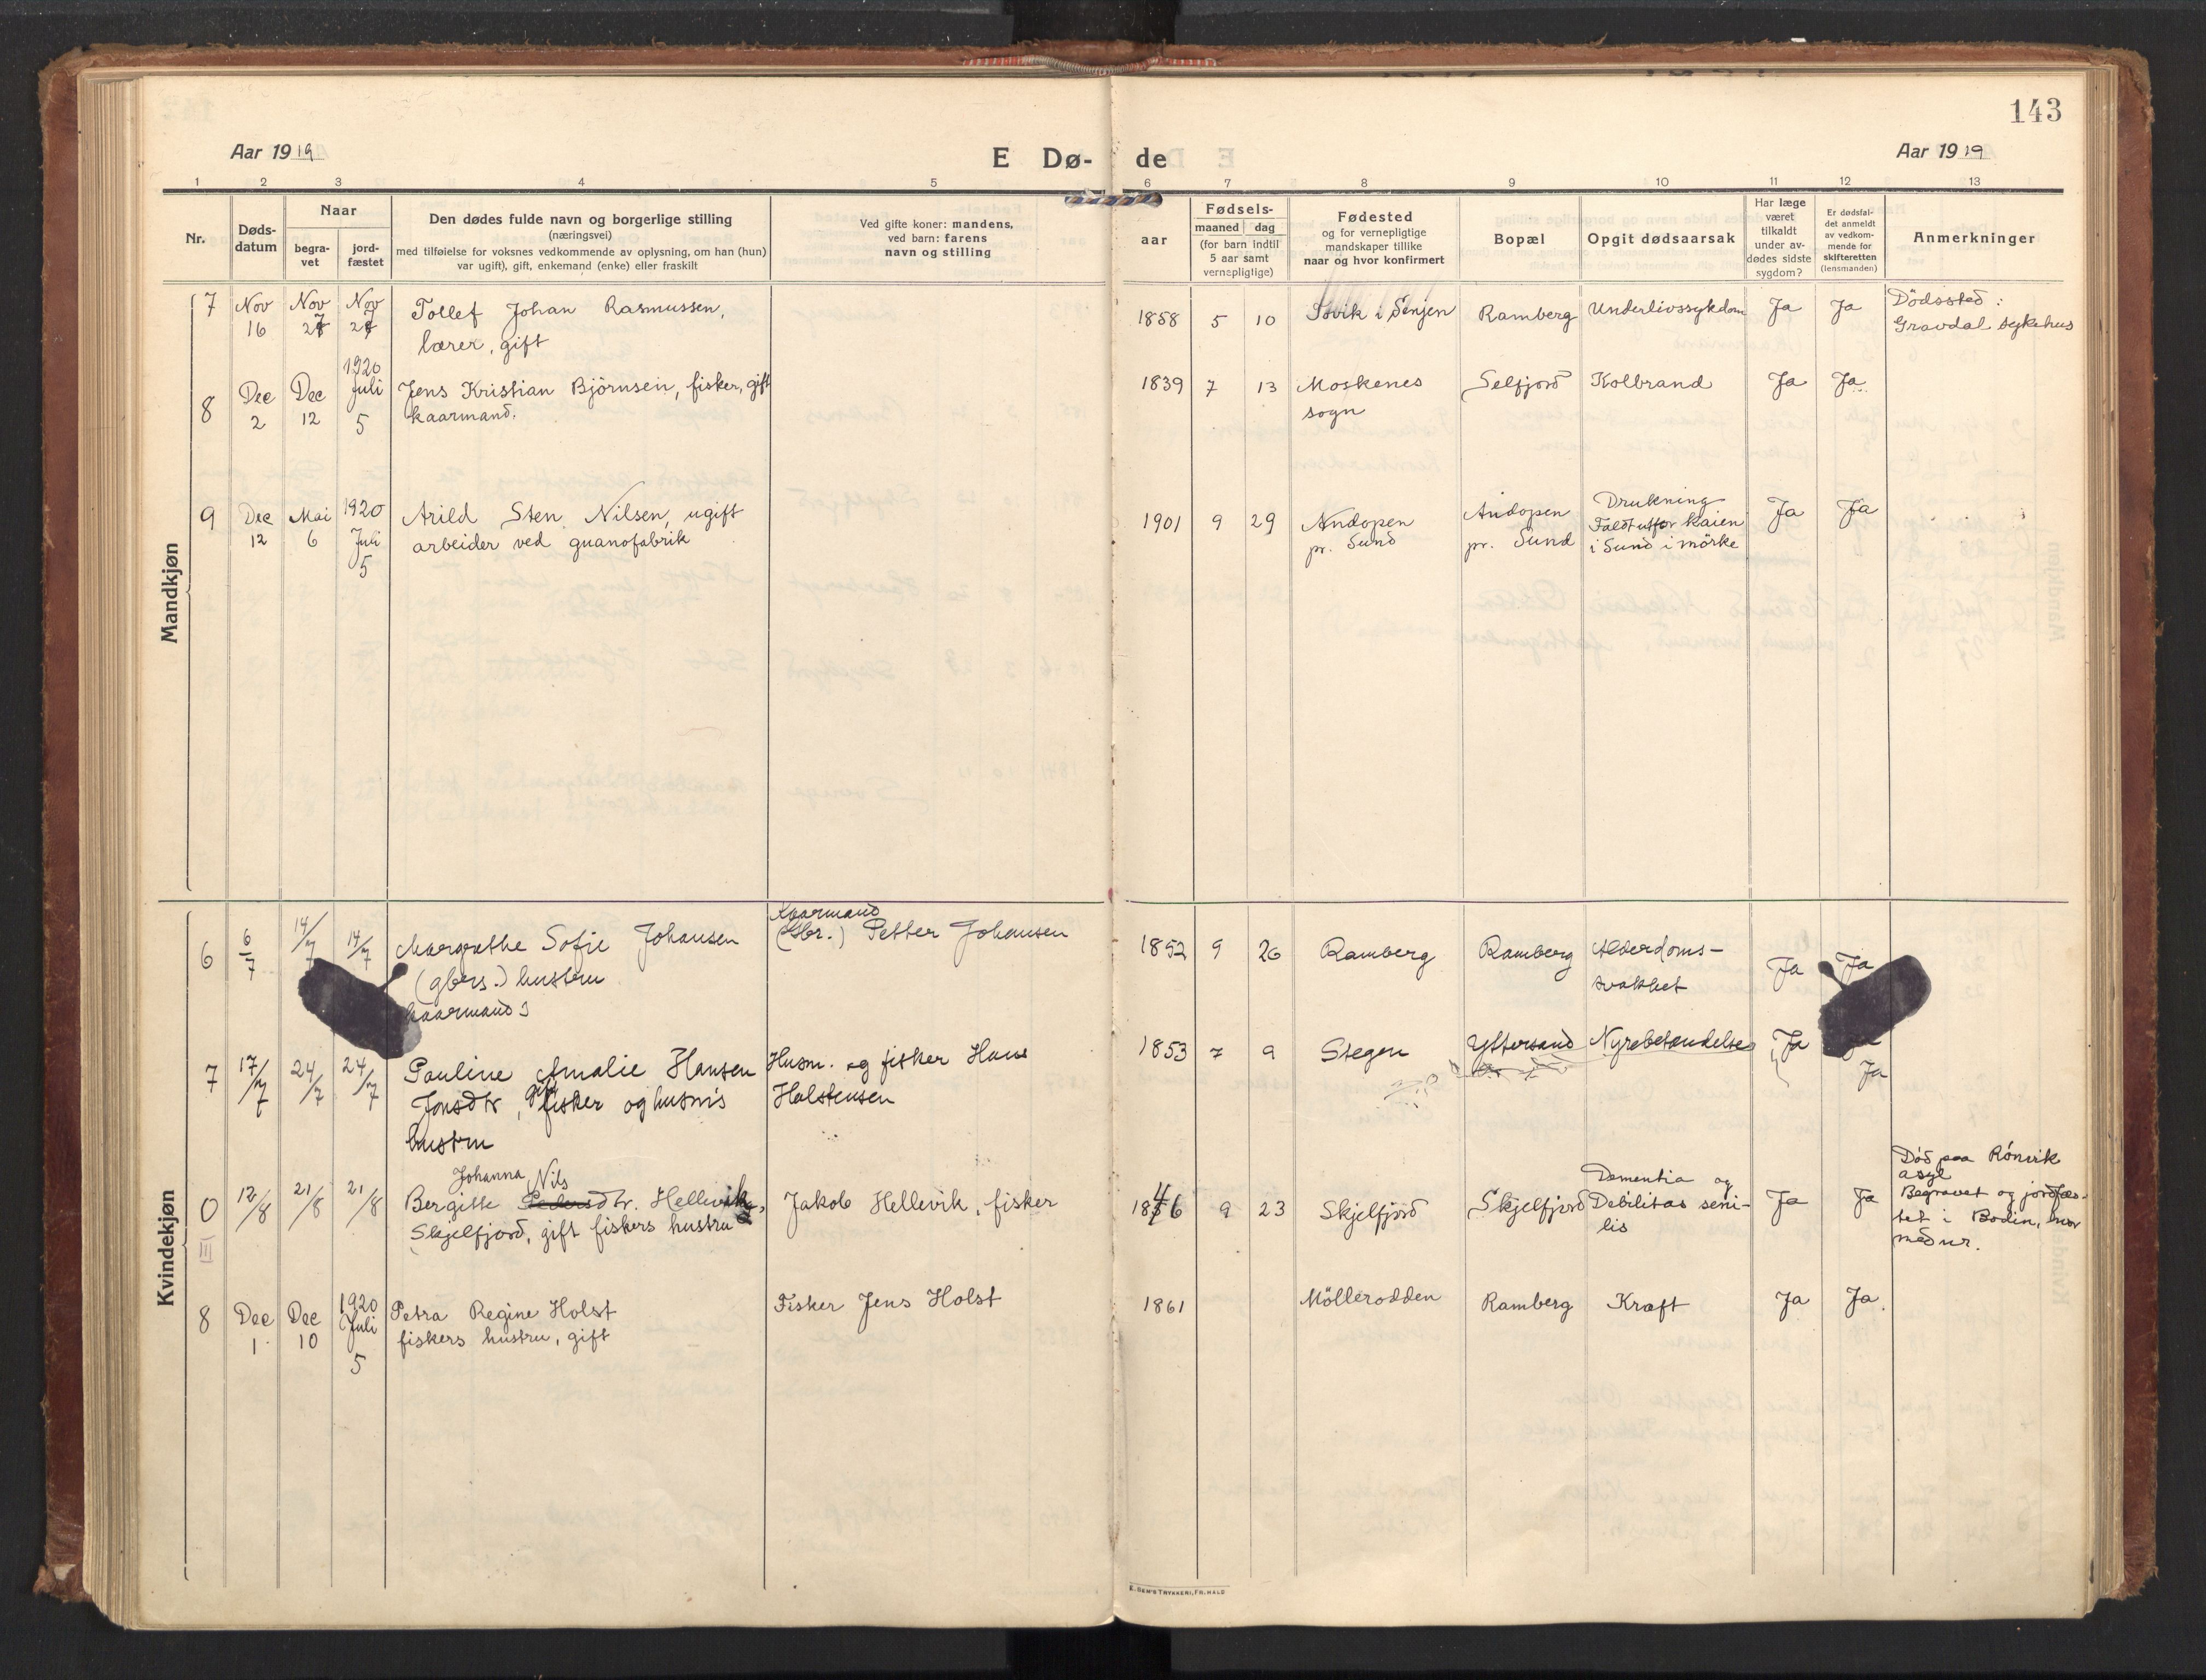 143
Aar 1919
E Dø-
de
Aar 1919
1 2 3 4 5 6 7 8 9 10 11 12 13
Nr.
Døds-
datum
Naar
begra-
vet
jord-
fæstet
Den dødes fulde navn og borgerlige stilling
(næringsvei)
med tilføielse for voksnes vedkommende av oplysning, om han (hun)
var ugift), gift, enkemand (enke) eller fraskilt
Ved gifte koner: mandens,
ved barn: farens
navn og stilling
Fødsels-
aar
maaned dag
(for barn indtil
5 aar samt
vernepligtige)
Fødested
og for vernepligtige
mandskaper tillike
naar og hvor konfirmert
Bopæl
Opgit dødsaarsak
Har læge
været
tilkaldt
under av-
dødes sidste
sygdom?
Er dødsfal-
det anmeldt
av vedkom-
mende for
skifteretten
(lensmanden)
Anmerkninger
Mandkjøn
7 Nov 16 Nov 27 Nov 27 Tollef Johan Rasmussen, 1858 5 10 i Senjen Ramberg Underlivssykdom Ja Ja Dödssted:
lærer, gift Gravdal sykehus
8 Dec 2 Dec 12 1920 Juli 5 Jens Kristian Björnsen, fisker, gift 1839 7 13 Moskenes Selfjord Kolbrand Ja Ja
kaarmand. sogn
9 Dec 12 Mai 6 1920 Juli 5 Arild Sten Nilsen, ugift 1901 9 29 Andopen Andopen Drukning Ja Ja
arbeider ved guanofabrik pr. Sund pr. Sund Faldt utfor kaien
i Sund i mörke
Kvindekjøn
6 6/7 14/7 14/7 Margrethe Sofie Johansen Kaarmand
(gbrs.) hustru (Gbr.) Petter Johansen 1852 9 26 Ramberg Ramberg Alderdoms-
kaarmands svakhet Ja Ja
7 17/7 24/7 24/7 Pauline Amalie Hansen Husm. og fisker Hans 1853 7 9 Stegen Yttersand Nyrebetændelse Ja
Jonsdtr, gift fisker og husm's Holstensen Ja
hustru
Johanna Nils
0 12/8 21/8 21/8 Bergitte Pedersdtr. Hellevik, Jakob Hellevik, fisker 1846 9 23 Skjelfjord Skjelfjord Dementia og
Skjelfjord, gift fiskers hustru Debilitas seni-
lis Ja Ja
Död paa Rönvik
asyl
Begravet og jordfæs-
tet i Bodin,
III
8 Dec 1 Dec 10 1920 Juli 5 Petra Regine Holst Fisker Jens Holst 1861 Möllerodden Ramberg Kræft Ja Ja
fiskers hustru, gift
E. SEM'S TRYKKERI, FR.HALD